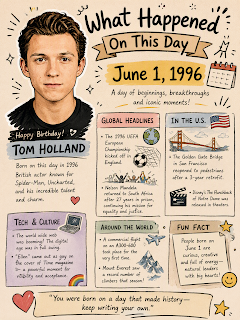 What Happened
On This Day
June 1, 1996
A day of beginnings, breakthroughs
and iconic moments!
Happy Birthday!
TOM HOLLAND
Born on this day in 1996
British actor known for
Spider-Man, Uncharted,
and his incredible talent
and charm.
GLOBAL HEADLINES
The 1996 UEFA
European
Championship
kicked off in
England.
Nelson Mandela
returned to South Africa
after 27 years in prison,
continuing his mission for
equality and justice.
IN THE U.S.
The Golden Gate Bridge
in San Francisco
reopened to pedestrians
after a 3-year retrofit.
Disney's The Hunchback
of Notre Dame was
released in theaters.
TECH & CULTURE
The world wide web
was booming! The digital
age was in full swing.
"Ellen" came out as gay on
the cover of Time magazine
in a powerful moment for
visibility and acceptance.
AROUND THE WORLD
A commercial flight
on an
took place for the
very first time.
Mount Everest saw
a record number of
climbers that season!
FUN FACT
People born on
June 1 are
curious, creative
and full of energy—
natural leaders with
big hearts!
"You were born on a day that made history—
keep writing your own."